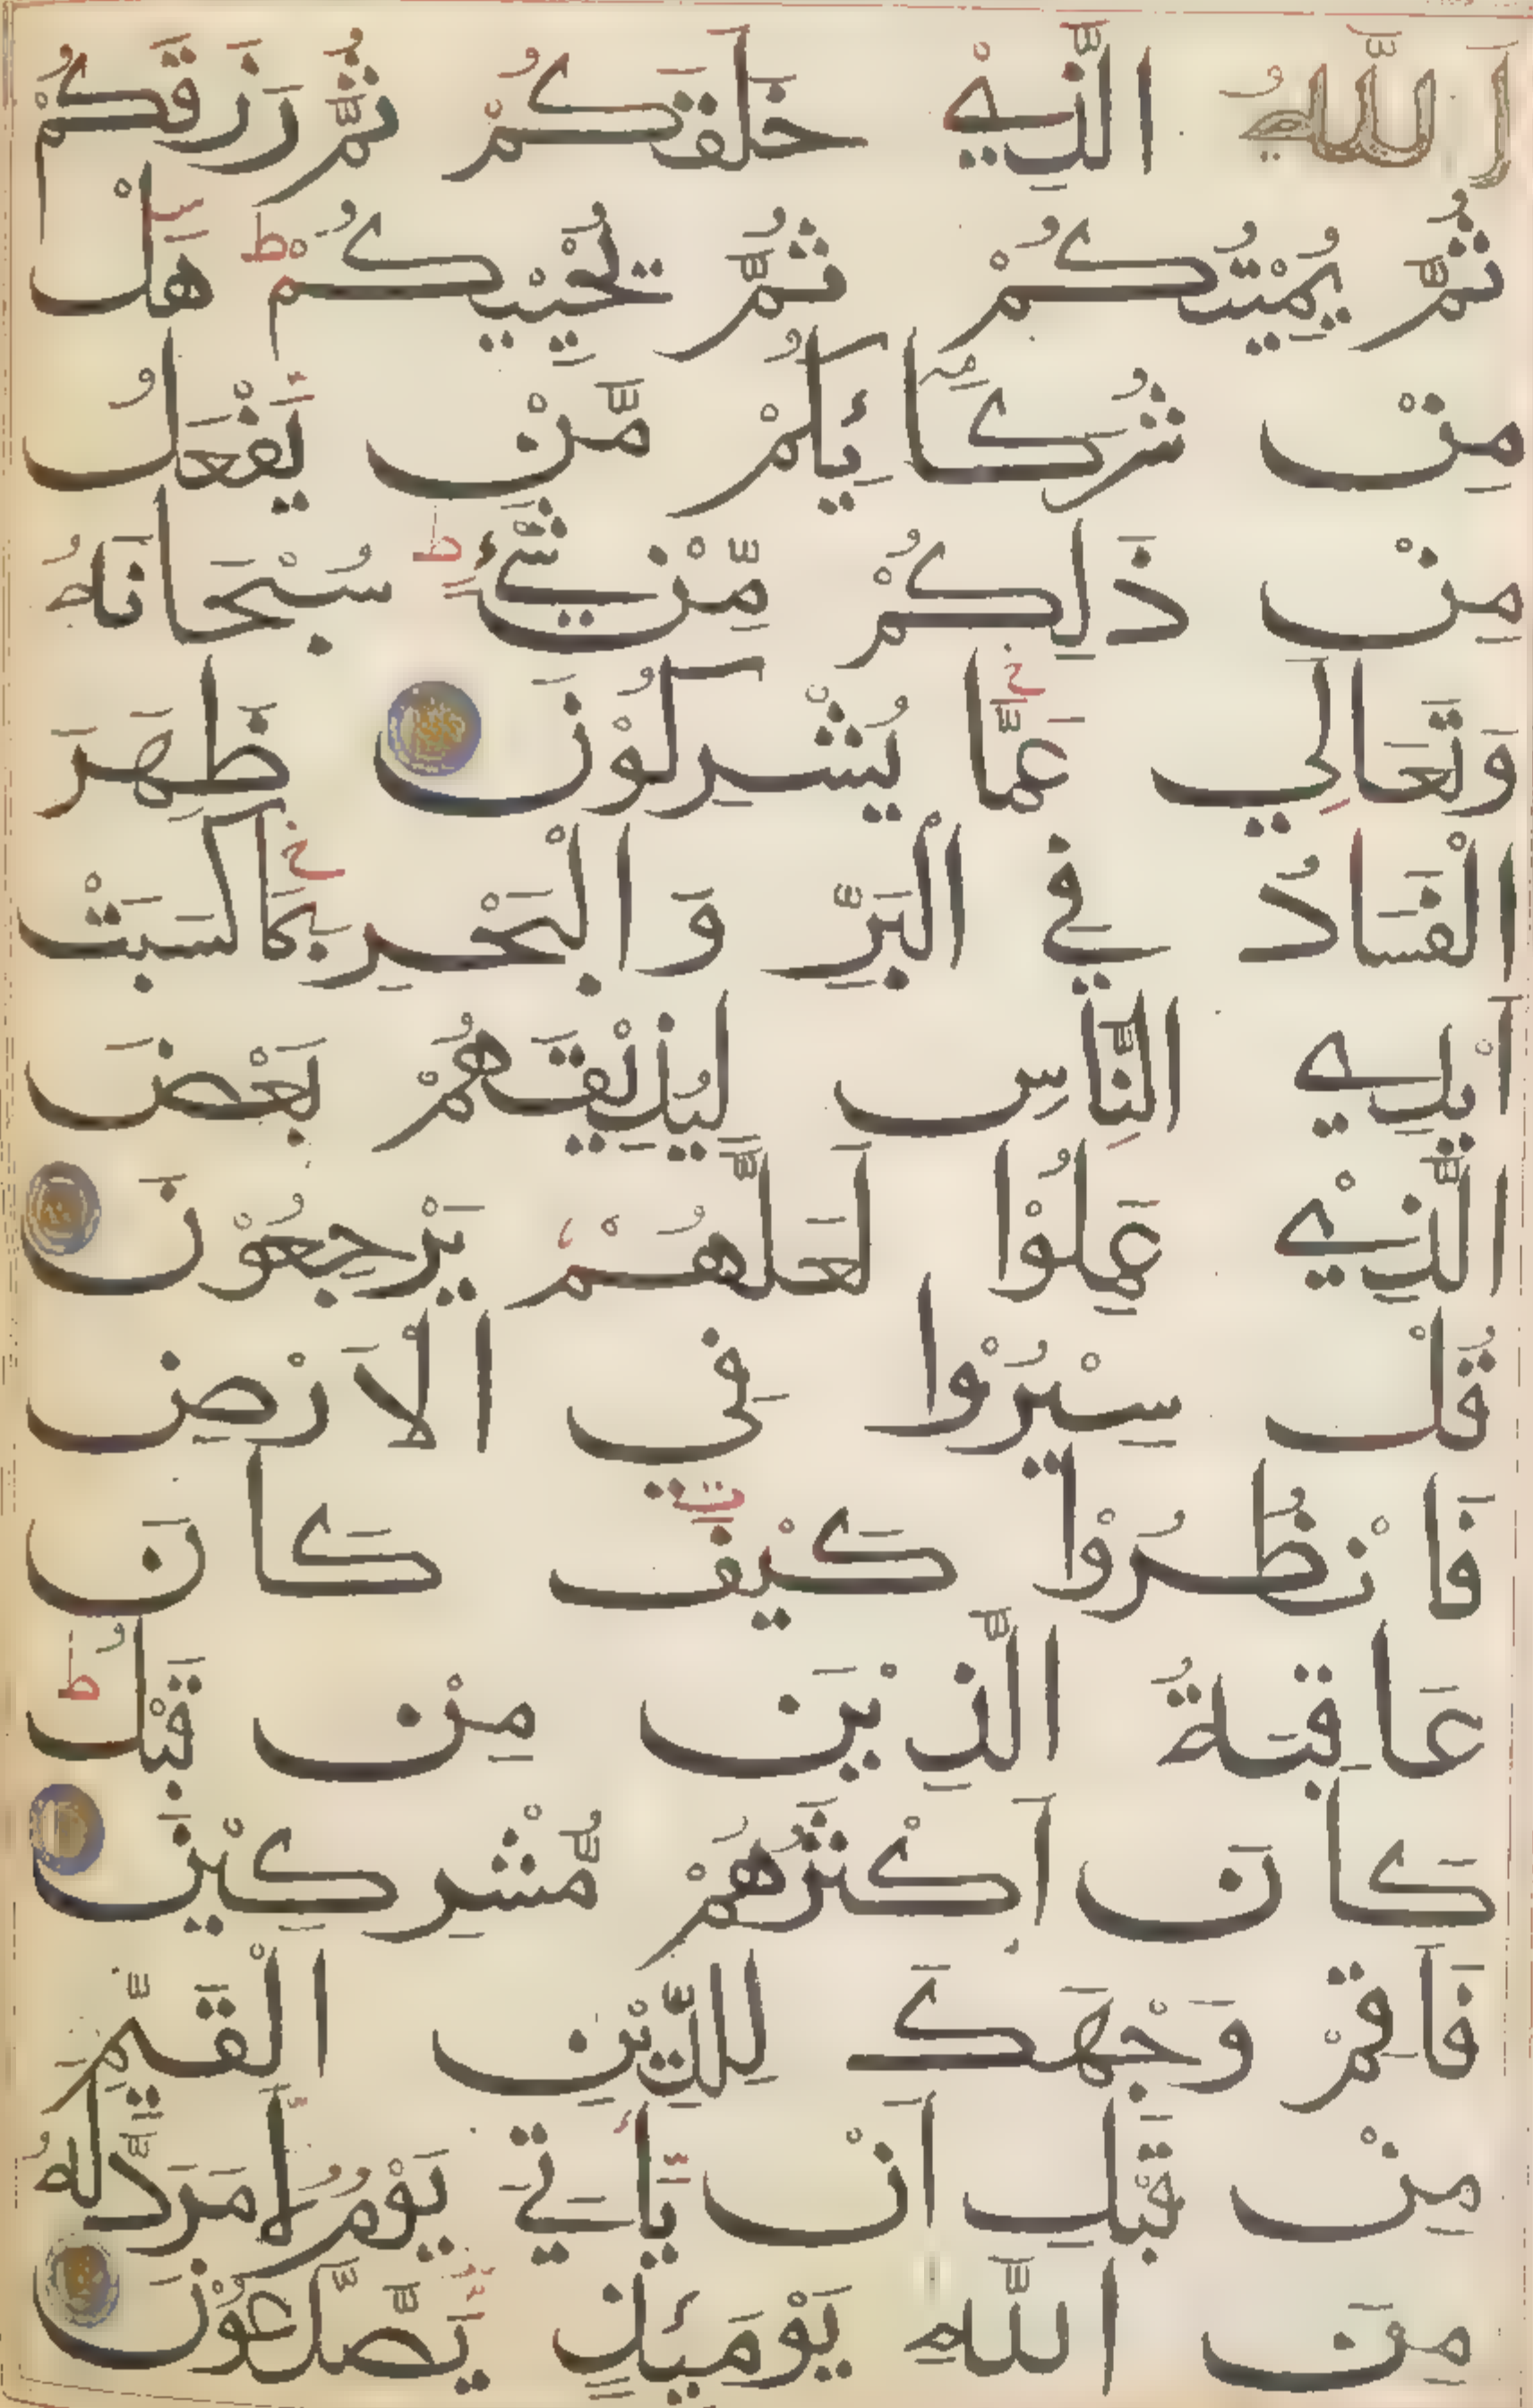 اَللّٰهُ الَّذِيْ خَلَقَكُمْ ثُمَّ رَزَقَكُمْ
ثُمَّ يُمِيْتُكُمْ ثُمَّ يُحْيِيْكُمْ ط هَلْ
مِنْ شُرَكَائِكُمْ مَّنْ يَفْعَلُ
مِنْ ذَلِكُمْ مِّنْ شَيْءٍ ط سُبْحَانَهُ
وَتَعَالَي عَمَّا يُشْرِكُوْنَ ظَهَرَ
الْفَسَادُ فِي الْبَرِّ وَالْبَحْرِ بِمَا كَسَبَتْ
اَيْدِي النَّاسِ لِيُذِيْقَهُمْ بَعْضَ
الَّذِيْ عَمِلُوْا لَعَلَّهُمْ يَرْجِعُوْنَ
قُلْ سِيْرُوْا فِي الْاَرْضِ
فَانْظُرُوْا كَيْفَ كَانَ
عَاقِبَةُ الَّذِيْنَ مِنْ قَبْلُ ط
كَانَ اَكْثَرُهُمْ مُّشْرِكِيْنَ
فَاَقِمْ وَجْهَكَ لِلدِّيْنِ الْقَيِّمِ
مِنْ قَبْلِ اَنْ يَّأْتِيَ يَوْمٌ لَّا مَرَدَّ لَهُ
مِنَ اللّٰهِ يَوْمَئِذٍ يَّصَّدَّعُوْنَ